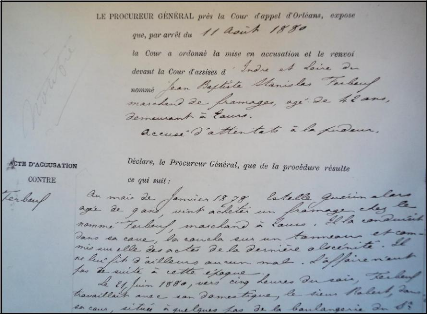 LE PROCUREUR GÉNÉRAL près la Cour d'appel d'Orléans, expose
que, par arrêt du 11 Août 1880
la Cour a ordonné la mise en accusation et le renvoi
devant la Cour d'assises d'Indre et Loire du
nommé Jean Baptiste Stanislas
marchand de fromages, agé de 42 ans,
demeurant à Tours.
accusé d'attentats à la pudeur.
ACTE D'ACCUSATION
CONTRE
Déclare, le Procureur Général, que de la procédure résulte
ce qui suit:
Au mois de Janvier 1879 Estelle Guérin alors
agée de 9 ans, vint acheter un fromage chez le
nommé marchand à Tours. Il la conduisit
dans sa cave, la coucha sur un tonneau et com-
mis sur elle des actes de la dernière obscénité. Il
ne lui fit d'ailleurs aucun mal. L'affaire n'eut
pas de suite à cette époque.
Le 21 Juin 1880, vers cinq heures du soir,
travaillait avec son domestique, le sieur Robert, dans
sa cave, située à quelques pas de la boulangerie du Sr